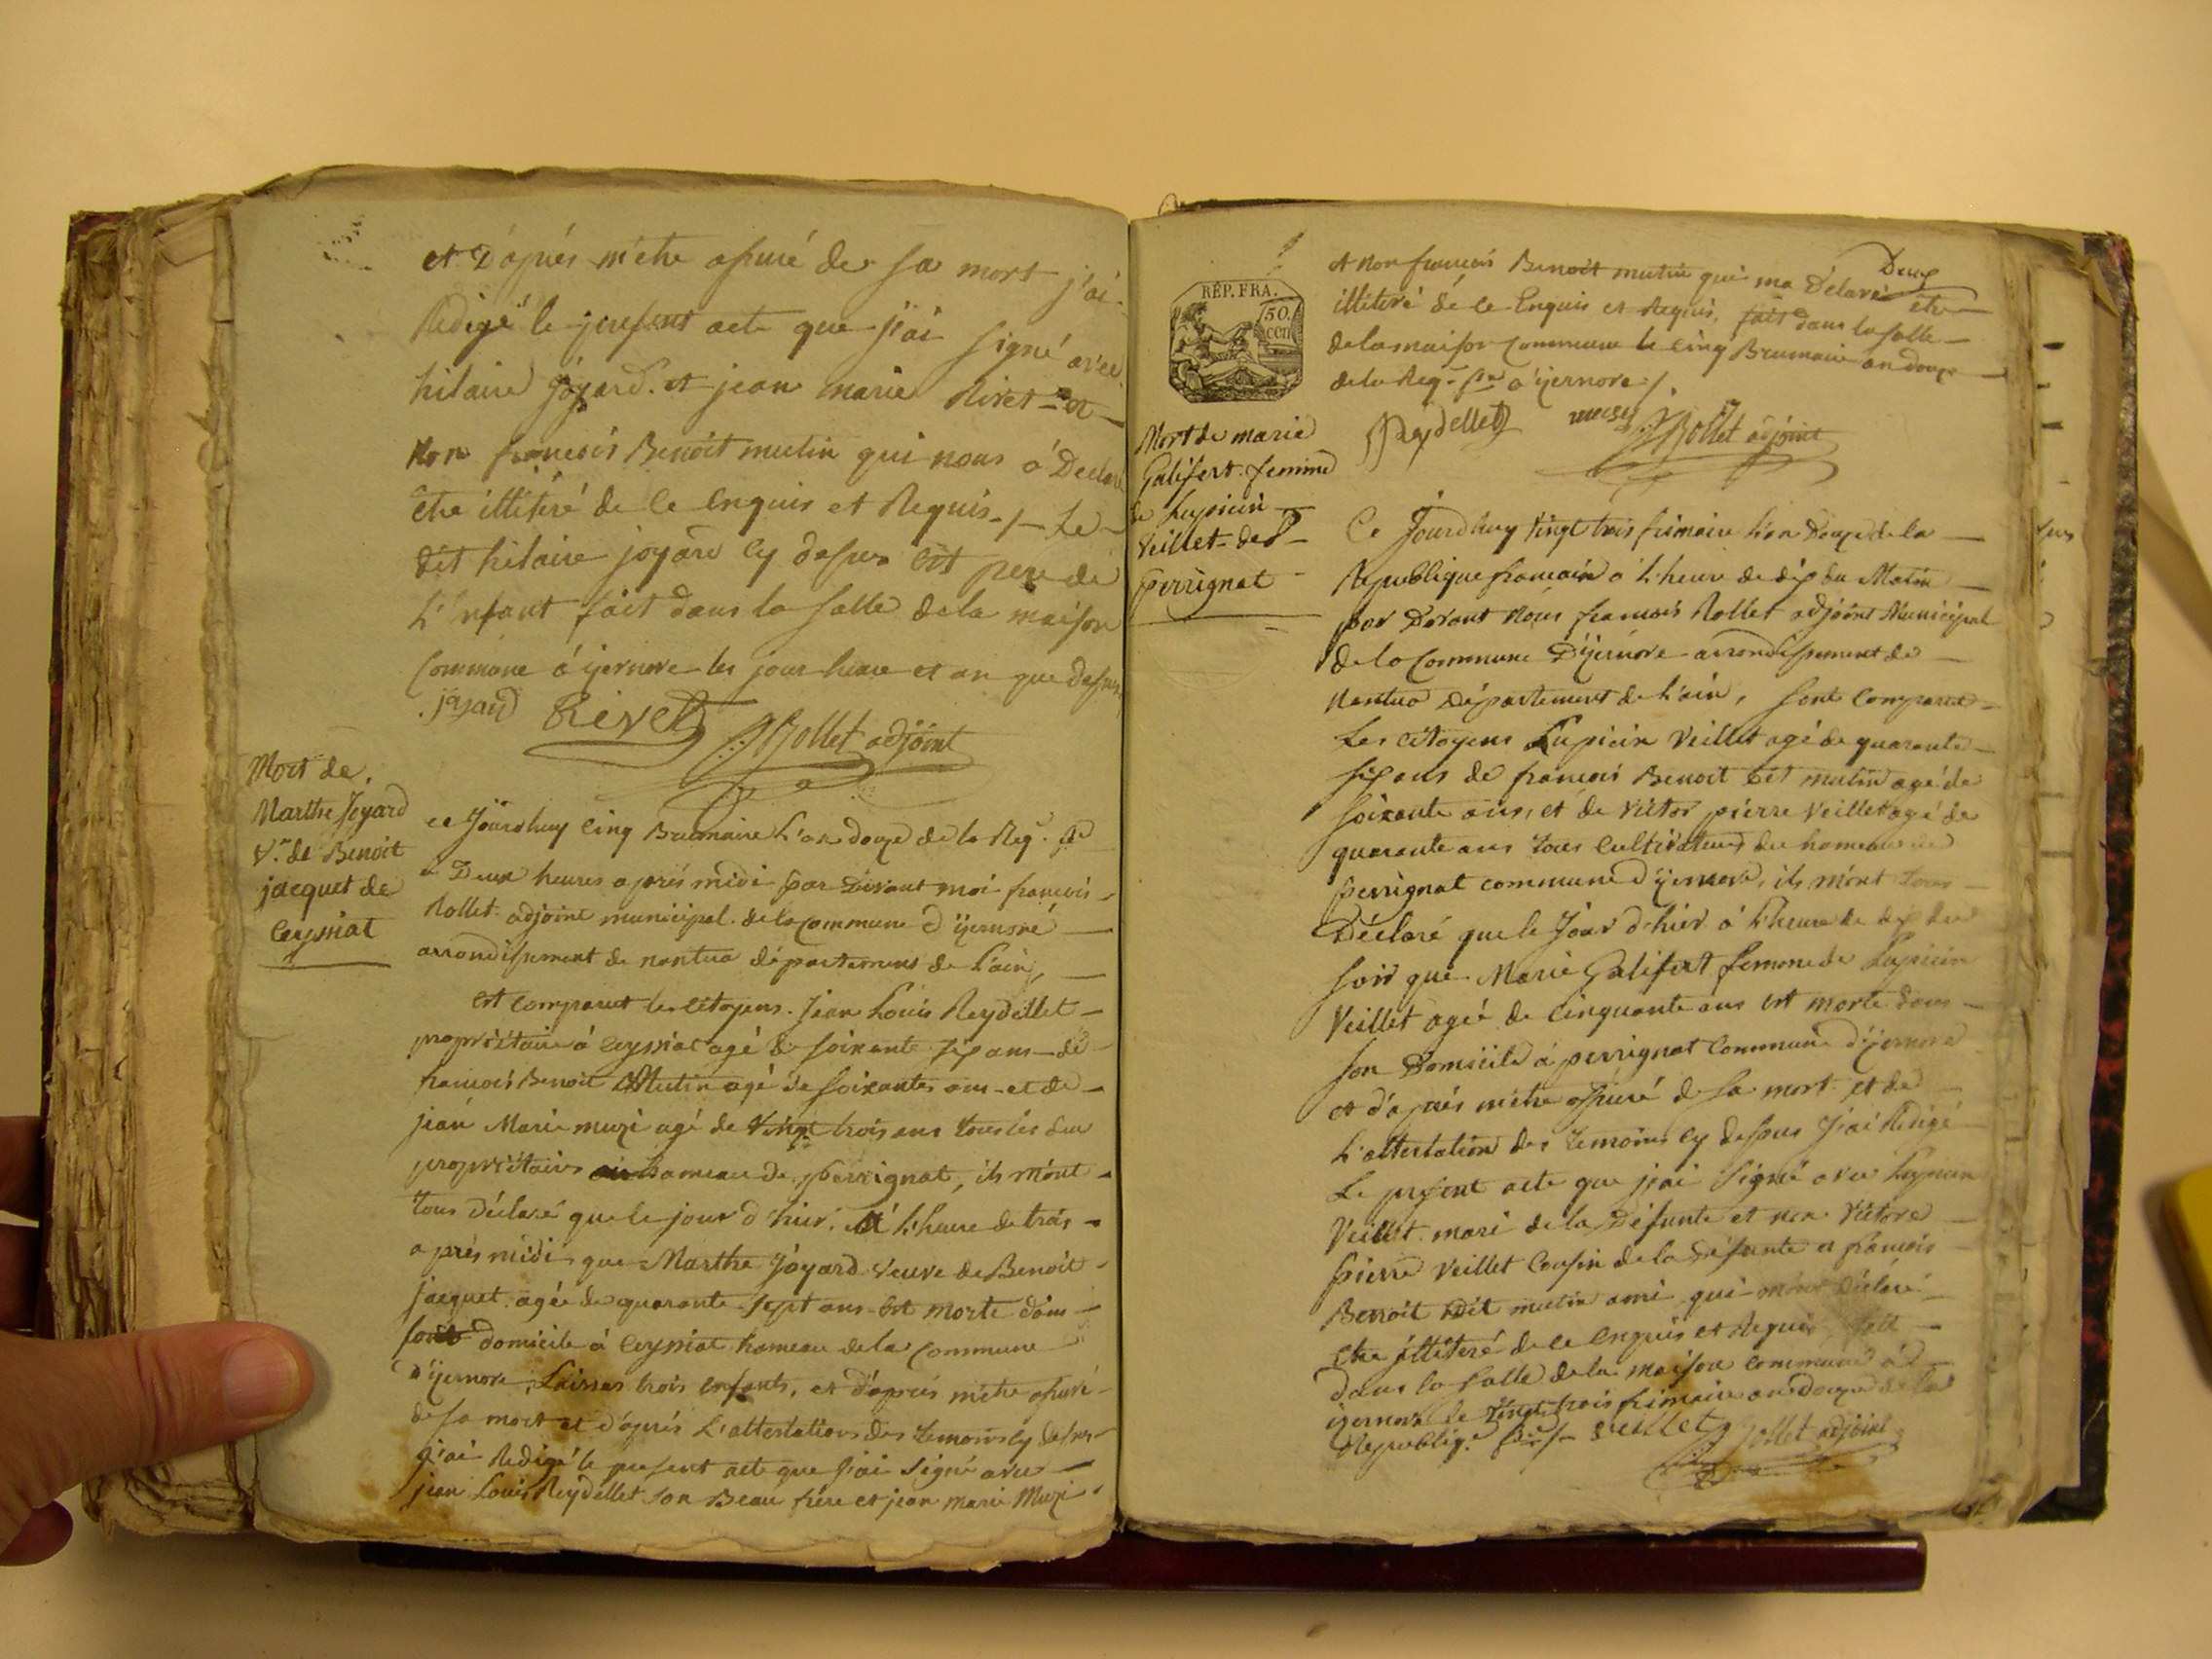 et D'après m'être assuré de sa mort j'ai
Redigé le present acte que j'ai signé avec
hilaire Joyard. et jean marie Rivet - et
Non françois Benoit mutin qui nous a Declaré
être illitéré de ce Enquis et Requis -/- Le
dit hilaire joyard cy dessus Est pere de
L'Enfant fait dans la salle de la maison
Commune a ijernore les jour heure et an que dessus
joyard Rivet Rollet adjoint
Mort de
Marthe Joyard
V.ve de Benoit
jacquet de
Ceyssiat
ce Jourdhuy Cinq Brumaire L'an douze de la Rep. fse
a Deux heures après midi par Devant moi françois
Rollet adjoint municipal de la Commune d'ijernore
arrondissement de nantua département de L'ain,
Est comparut les Citoyens Jean Louis Reydellet
propriétaire à Ceyssiat agé de soixante six ans de
francois Benoit Mutin agé de soixantes ans et de
jean Marie muzi agé de Vingt trois ans tous les deu
propriétaires au hameau de perrignat, ils mont
tous déclaré que le jour d'hier. a L'heure de trois
après midi que Marthe Joyard veuve de Benoit
Jacquet agée de quarante sept ans Est morte dans
son domicile à Ceyssiat hameau de la Commune
d'ijernore, Laisses trois enfants, et d'après m'être assuré
de sa mort et d'après L'attestations des temoins cy dessus
j'ai Redigé le present acte que j'ai signé avec
jean Louis Reydellet son Beau frére et jean marie Muzi
Deux
et Non francois Benoit mutin qui ma Déclaré être
illitéré dé ce Enquis et Requis, fait dans la salle
de la maison Commune le Cinq Brumaire an douze
de la Rep. fse a ijernore /.
Reydellet muzi Rollet adjoint
RÉP. FRA.
50.
cen
Mort de marie
Galifert femme
de Lupicin
Veillet de
perrignat
Ce Jourdhuy Vingt trois frimaire L'an Douze de la
Republique francaise a L'heure de dix du Matin
par Devant Nous francois Rollet adjoint Municipal
de la Commune D'ijernore arrondissement de
Nantua Département de L'ain, sont Comparut
Les citoyens Lupicin Veillet agé de quarante
six ans de francois Benoit dit mutin agé de
soixante ans, et de Victor pierre Veillet agé de
quarante ans tous Cultivateurs du hameau de
perrignat commune d'ijernore, ils m'ont tous
Déclaré que le Jour d'hier à L'heure de dix du
soir que Marie Galifert femme de Lupicin
Veillet agée de Cinquante ans Est morte dans
son Domicile à perrignat Commune d'ijernore
et d'après m'être assuré de sa mort et de
L'attestation des temoins cy dessus J'ai Redigé
Le present acte que j'ai signé avec Lupicin
Veillet mari de la Défunte et non Victore
pierre Veillet Cousin de la défunte et francois
Benoit Dit mutin ami qui m'ont Déclaré
être illitéré de ce Enquis et Requis, fait
dans la salle de la maison commune a
ijernore le Vingt trois frimaire an douze de la
Republiq.e fse /- Veillet Rollet adjoint